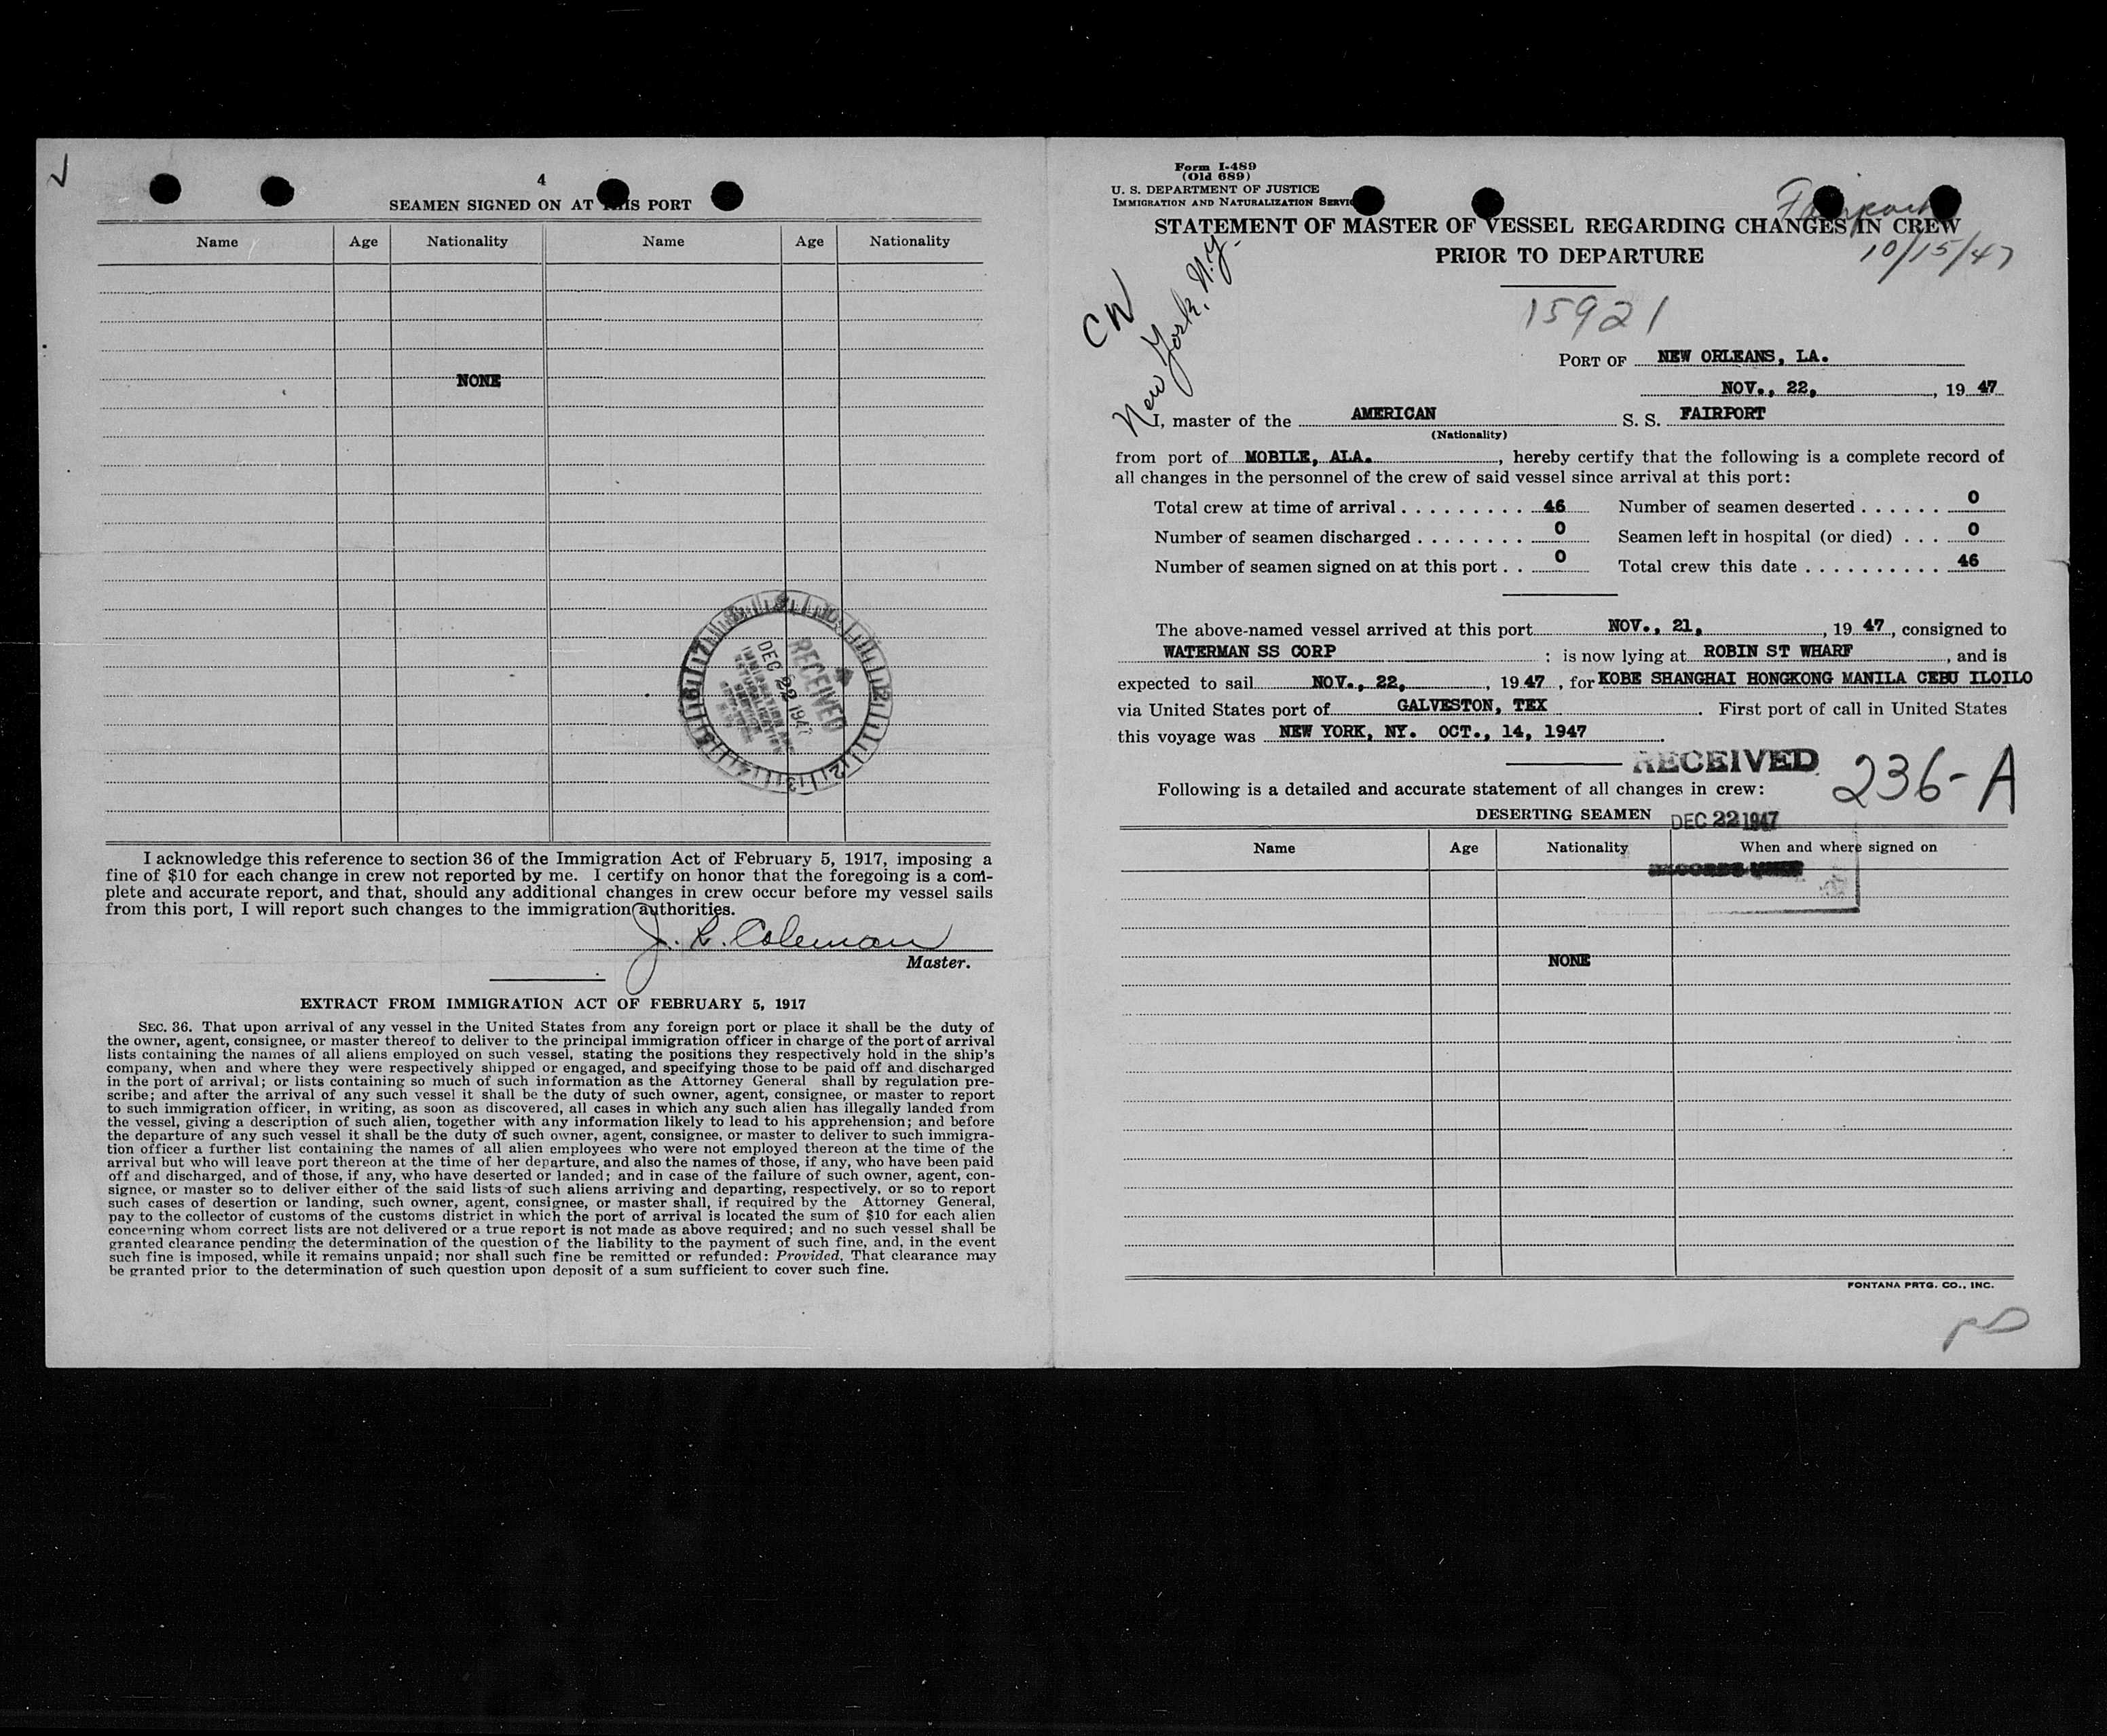 4
SEAMEN SIGNED ON AT THIS PORT
Name Age Nationality Name Age Nationality
NONE
RECEIVED
DEC 22 194
IMMIGRATION AND
NATURALIZATION
SERVICE
I acknowledge this reference to section 36 of the Immigration Act of February 5, 1917, imposing a
fine of $10 for each change in crew not reported by me. I certify on honor that the foregoing is a com-
plete and accurate report, and that, should any additional changes in crew occur before my vessel sails
from this port, I will report such changes to the immigration authorities.
J. R. Coleman
Master.
EXTRACT FROM IMMIGRATION ACT OF FEBRUARY 5, 1917
SEC. 36. That upon arrival of any vessel in the United States from any foreign port or place it shall be the duty of
the owner, agent, consignee, or master thereof to deliver to the principal immigration officer in charge of the port of arrival
lists containing the names of all aliens employed on such vessel, stating the positions they respectively hold in the ship's
company, when and where they were respectively shipped or engaged, and specifying those to be paid off and discharged
in the port of arrival; or lists containing so much of such information as the Attorney General shall by regulation pre-
scribe; and after the arrival of any such vessel it shall be the duty of such owner, agent, consignee, or master to report
to such immigration officer, in writing, as soon as discovered, all cases in which any such alien has illegally landed from
the vessel, giving a description of such alien, together with any information likely to lead to his apprehension; and before
the departure of any such vessel it shall be the duty of such owner, agent, consignee, or master to deliver to such immigra-
tion officer a further list containing the names of all alien employees who were not employed thereon at the time of the
arrival but who will leave port thereon at the time of her departure, and also the names of those, if any, who have been paid
off and discharged, and of those, if any, who have deserted or landed; and in case of the failure of such owner, agent, con-
signee, or master so to deliver either of the said lists of such aliens arriving and departing, respectively, or so to report
such cases of desertion or landing, such owner, agent, consignee, or master shall, if required by the Attorney General,
pay to the collector of customs of the customs district in which the port of arrival is located the sum of $10 for each alien
concerning whom correct lists are not delivered or a true report is not made as above required; and no such vessel shall be
granted clearance pending the determination of the question of the liability to the payment of such fine, and, in the event
such fine is imposed, while it remains unpaid; nor shall such fine be remitted or refunded: Provided, That clearance may
be granted prior to the determination of such question upon deposit of a sum sufficient to cover such fine.
Form I-489
(Old 689)
U. S. DEPARTMENT OF JUSTICE
IMMIGRATION AND NATURALIZATION SERVICE
Fairport
STATEMENT OF MASTER OF VESSEL REGARDING CHANGES IN CREW
PRIOR TO DEPARTURE
10/15/47
CW
New York, N.Y.
15921
PORT OF NEW ORLEANS, LA.
NOV., 22, , 19 47
I, master of the AMERICAN S. S. FAIRPORT
(Nationality)
from port of MOBILE, ALA. , hereby certify that the following is a complete record of
all changes in the personnel of the crew of said vessel since arrival at this port:
Total crew at time of arrival . . . . . . . . . 46 Number of seamen deserted . . . . . . 0
Number of seamen discharged . . . . . . . . 0 Seamen left in hospital (or died) . . . 0
Number of seamen signed on at this port . . 0 Total crew this date . . . . . . . . . . . 46
The above-named vessel arrived at this port NOV., 21, , 19 47, consigned to
WATERMAN SS CORP : is now lying at ROBIN ST WHARF , and is
expected to sail NOV., 22, , 19 47 , for KOBE SHANGHAI HONGKONG MANILA CEBU ILOILO
via United States port of GALVESTON, TEX . First port of call in United States
this voyage was NEW YORK, NY. OCT., 14, 1947 .
RECEIVED
236-A
Following is a detailed and accurate statement of all changes in crew:
DESERTING SEAMEN
DEC 22 1947
Name Age Nationality When and where signed on
NONE
FONTANA PRTG. CO., INC.